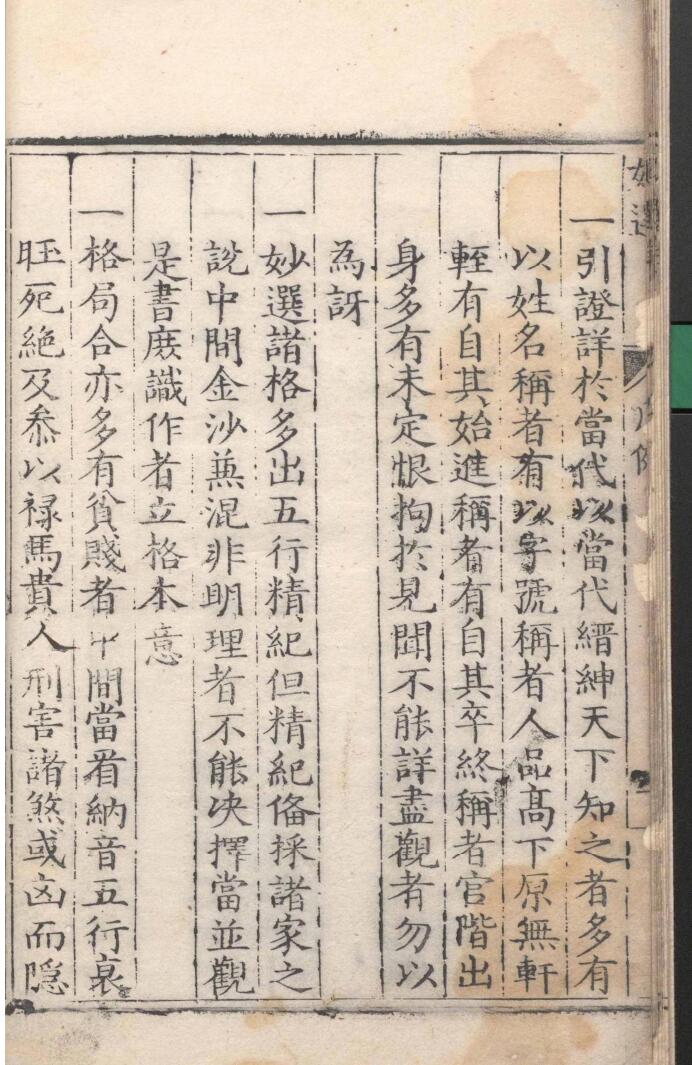 一引證詳於當代以當代縉紳天下知之者多有
以姓名稱者有以字號稱者人品高下原無軒
輊有自其始進稱者有自其卒終稱者官階出
身多有未定恨拘於見聞不能詳盡觀者勿以
為訝
一妙選諸格多出五行精紀但精紀俻採諸家之
說中間金沙蒹混非明理者不能决擇當並觀
是書庻識作者立格本意
一格局合亦多有貧賤者中間當看納音五行衰
旺死絶及叅以禄馬貴人刑害諸煞或凶而隠